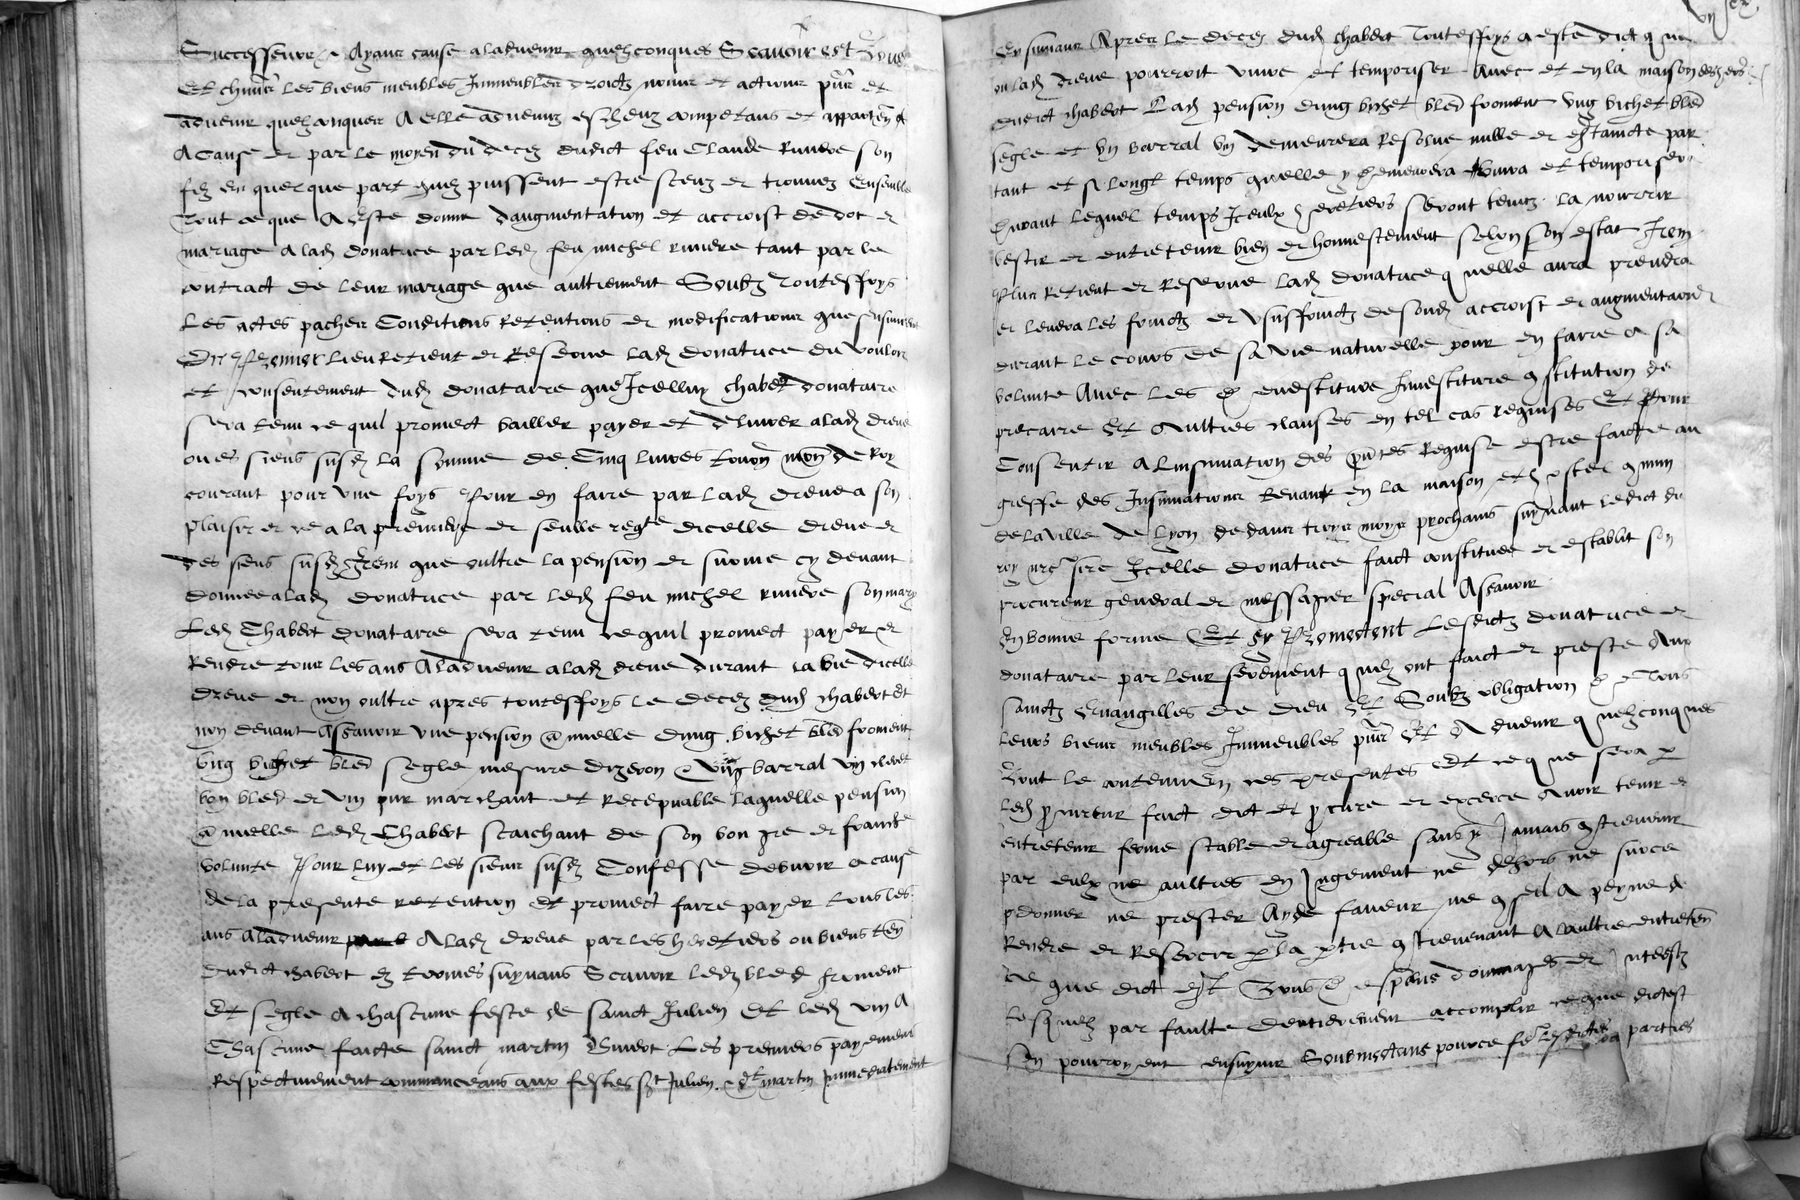 Successeurs & ayans cause a ladvenir quelzconques Scavoir est Tous
Et chun&s les biens meubles Immeubles droictz noms et actions pns et
advenir quelzconques A elle advenuz escheuz competans et apparten
A cause et par le moyen du decez dudict feu Claude Riviere son
filz en quelque part quilz puissent estre sceuz et trouvez Ensemble
Tout ce que A este donne daugmentation et accroist de dot et
mariage a lad donatrice par led feu michel riviere tant par le
contract de leur mariage que aultrement Soubz Toutesfoys
Les actes paches Conditions Retentions et modifications que sensuivent
En Premier lieu Retient et Reserve Lad donatrice du vouloir
et consentement dud donataire que Icelluy chabert donataire
sera tenu ce quil promect bailler payer et delivrer a lad dreve
ou es siens susd la somme de Cinq livres tourn monn de Roy
courant pour une foys Pour en faire par lad dreve a son
plaisir et ce a la premiere et seulle regte dicelle dreve et
des siens susd Item que oultre la pension et somme cy devant
donnee a lad donatrice par led feu michel riviere son mary
Led Chabert donataire sera tenu ce quil promect payer et
Rendre tous les ans A ladvenir a lad dreve durant la vie dicelle
dreve et non oultre apres toutesfoys le decez dud chabert et
non devant Assavoir une pension annuelle dung bichet bled froment
ung bichet bled segle mesure dizeron & ung barral vin cleret
bon bled et vin pur marchant et recepvable laquelle pension
annuelle Led Chabert scaichant de son bon gre et franche
volunte Pour luy et les siens susd Confesse debvoir a cause
de la presente retention et promect faire payer tous les
ans a ladvenir A lad dreve par les heretiers ou biens ten
dudict chabert es termes suyvans Scavoir led bled froment
Et segle A chascune feste de sainct Julien Et led vin A
Chascune faicte sainct martin dhiver Les premiers payemens
Respectivement commanceans aux festes st Julien & st martin Immediatement
En suivans Apres le decez dud chabert Toutesfoys a este dict que
ou lad dreve pourroit vivre et temporiser avec et en la maison des hers
dudict chabert Lad pension dung bichet bled froment ung bichet bled
segle et ung barral vin demeurera Resolue nulle et estaincte par
tant et si longt temps quelle y demeurera vivra et temporisera
Durant lequel temps Iceulx heretiers seront tenuz la nourrir
vestir et entretenir bien et honnestement selon son estat Item
Plus Retient et Reserve lad donatrice quelle aura prendra
et levera les fruictz et usuffruictz de sond accroist et augmentation
durant le cours de sa vie naturelle pour en faire a sa
volunte Avec les devestiture Investiture constitution de
precaire Et Aultres clauses en tel cas requises Et Pour
Consentir A Linsinuation des pntes Requise estre faicte au
greffe des Insinuations tenant en la maison et hostel commun
de la ville de Lyon dedans troys moys prochains suyvant ledict du
roy nre sire Icelle donatrice faict constitue et establit son
procureur general et messagier special Assavoir
En bonne forme Et Promectent Lesdictz donatrice et
donataire par leur serement quilz ont faict et preste Aux
sainctz Evangilles de dieu Et Soubz obligation de Tous
leurs biens meubles Immeubles pns Et Advenir quelzconques
Tout le contenu en ces presentes Et ce que sera par
led procureur faict dict et procure et exerce Avoir tenir et
entretenir ferme stable et agreable sans Jamais contrevenir
par eulx ne aultres en Jugement ne dehors ne source
donner ne prester Ayde faveur ne conseil A peyne de
Rendre et Resercir par la partie contrevenant A laultre entretenen
ce que dict est Tous despens dommaiges et Interestz
lesquelz par faulte dentierement accomplir ce que dict est
sen pourroyent ensuyvir Soubmectans pource lesdictes parties